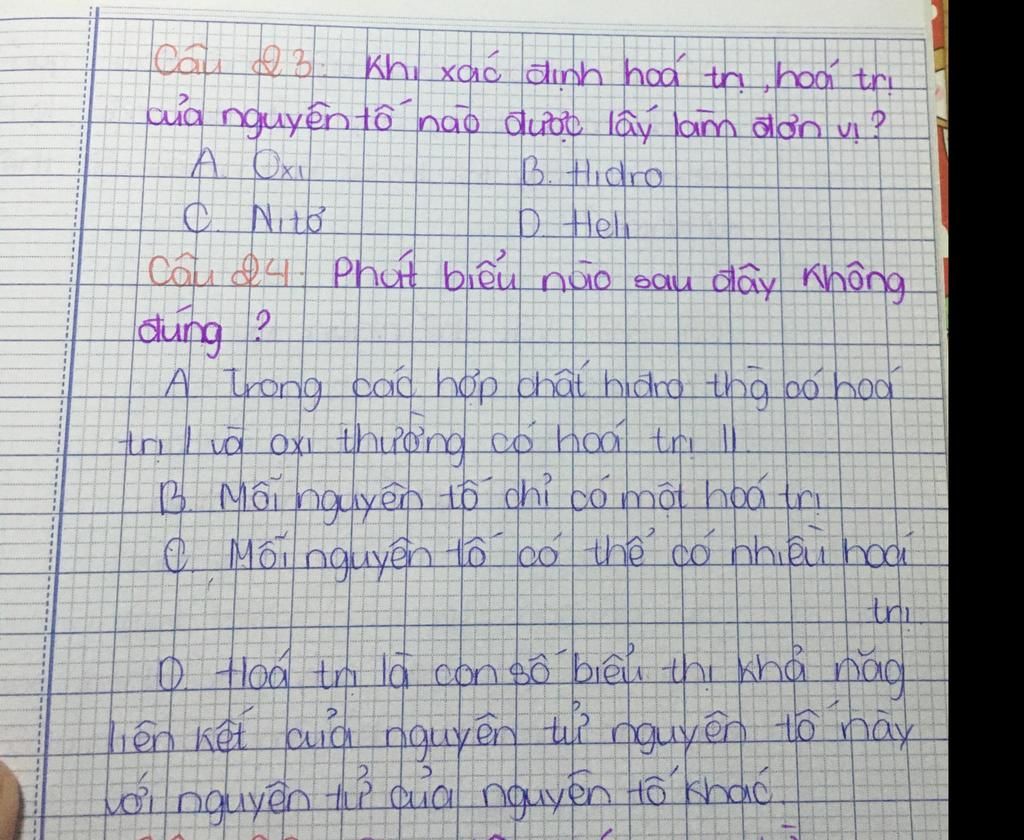 Câu 23. Khi xác định hoá trị, hoá trị
của nguyên tố nào được lấy làm đơn vị?
A. Oxi B. Hidro
C. Nitơ D. Heli
Câu 24. Phát biểu nào sau đây không
đúng?
A Trong các hợp chất hidro thg có hoá
trị I và oxi thường có hoá trị II
B. Mỗi nguyên tố chỉ có một hoá trị
C. Mỗi nguyên tố có thể có nhiều hoá
trị
D. Hoá trị là con số biểu thị khả năg
liên kết của nguyên tử nguyên tố này
với nguyên tử của nguyên tố khác